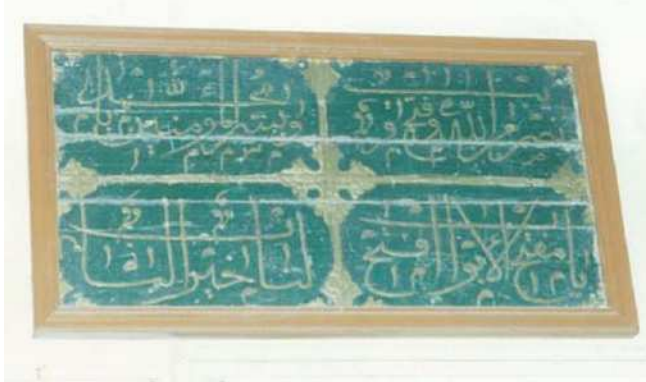 نصر من الله وفتح قريب
وبشر المؤمنين
يا مفتح الأبواب افتح
لنا خير الباب